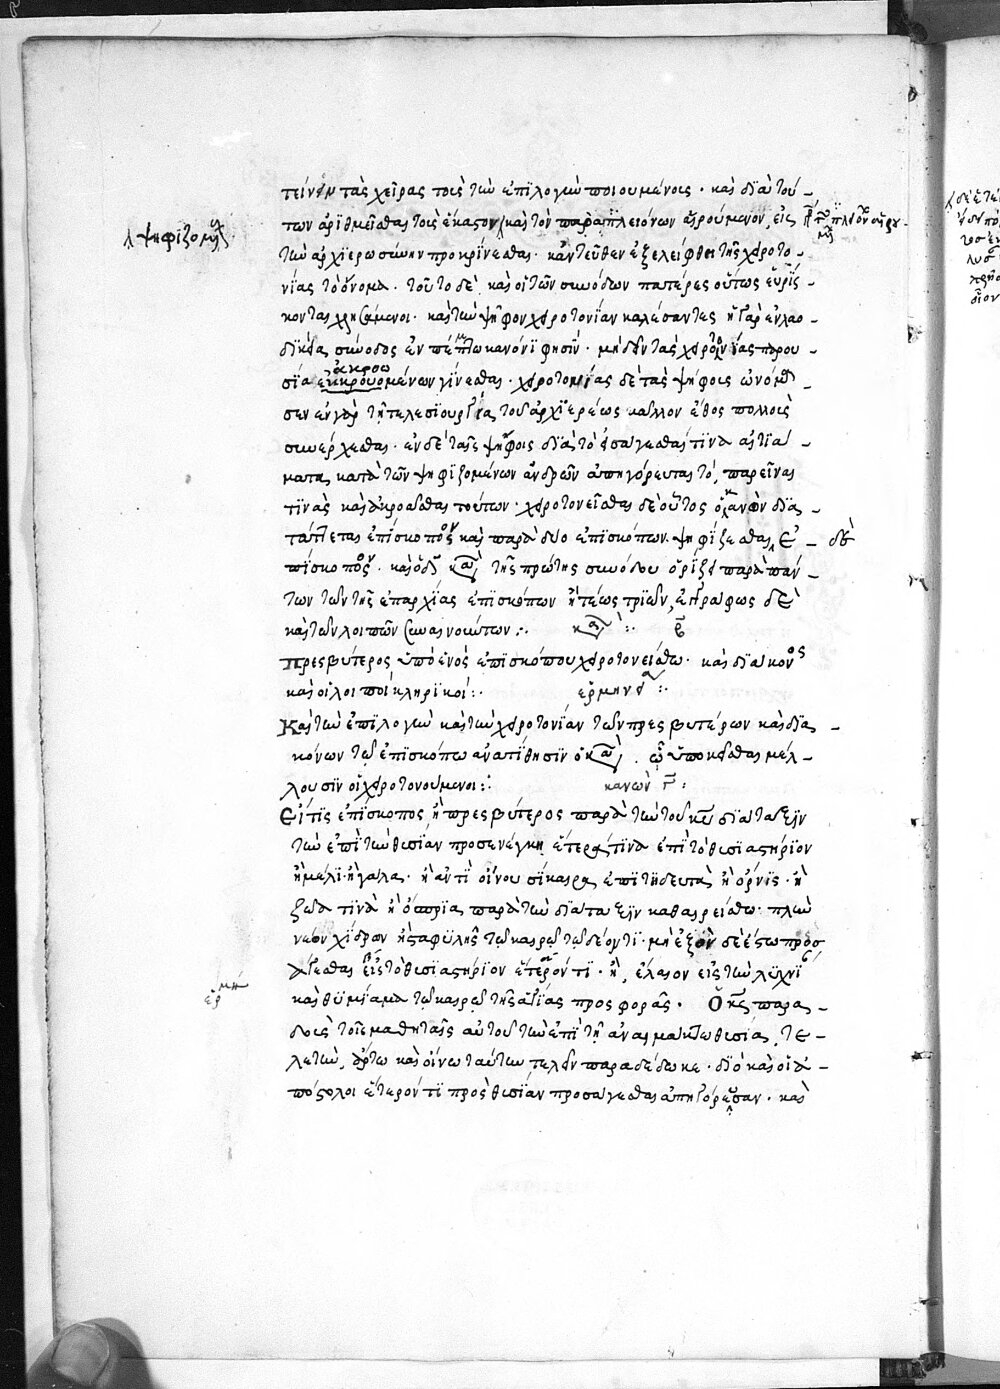 τείνειν τὰς χεῖρας τοὺς τὴν ἐπϊλογὴν ποιουμένους · καὶ διὰ τού -
των ἀρϊθμεῖσθαι τοὺς ἑκάστου καὶ τὸν παρὰ πλειόνων αἱρούμενον, εἰς
ψηφϊζομένους
τὴν ἀρχϊερωσύνην προκρίνεσθαι · κἀντεῦθεν ἐξελείφθει τῆς χειροτο -
νίας τὸ ὄνομα · τοῦτο δὲ καὶ οἱ τῶν συνόδων πατέρες οὕτως εὑρίσ
κονται χρησάμενοι · καὶ τὴν ψῆφον χειροτονΐαν καλέσαντες ἡ γὰρ ἐν λαο -
δϊκείᾳ σύνοδος ἐν πέμπτω κανόνϊ φησΐν · μὴ δεῖν τὰς χειροτονίας παρου -
σίᾳ ἀκροω
μένων γίνεσθαι · χειροτονίας δὲ τὰς ψήφους ὠνόμα
σεν ἐν γὰρ τῇ τελεσϊουργίᾳ τοῦ ἀρχϊερέως μᾶλλον ἔθος πολλοὺς
συνέρχεσθαι · ἐν δὲ ταῖς ψήφοις διὰ τὸ εἰσάγεσθαί τϊνα αἰτϊά -
ματα κατὰ τῶν ψηφϊζομένων ἀνδρῶν ἀπηγόρευται τό, παρεῖναί
τϊνας καὶ ἀκροᾶσθαι τούτων · χειροτονεῖσθαι δὲ οὗτος ὁ κανὼν διὰ -
τάττεται ἐπίσκοπον καὶ παρὰ δύο ἐπισκόπων · ψηφίζεσθαι Ε -
δὲ
πίσκοπον · καὶ ὁ δ κα τῆς πρώτης συνόδου ὁρϊζει παρὰ πάν -
των τῶν τῆς ἐπαρχίας ἐπισκόπων ἢ τέως τριῶν, ἐγγράφως δὲ
καὶ τῶν λοιπῶν συναινούντων :· κα :· β
Πρεσβύτερος ὑπὸ ἑνὸς ἐπισκόπου χειροτονείσθω · καὶ διάκονος
καὶ οἱ λοιποὶ κληρϊκοί :· ἑρμηνεία :·
Καὶ τὴν ἐπϊλογὴν καὶ τὴν χειροτονΐαν τῶν πρεσβυτέρων καὶ διᾱ -
κόνων τῷ ἐπϊσκόπω ἀνατίθησϊν ὁ κα . ᾧ ὑποκεῖσθαι μέλ -
λουσϊν οἱ χειροτονούμενοι :· κανὼν γ :
Εἴ τϊς ἐπίσκοπος ἢ πρεσβύτερος παρὰ τὴν τοῦ κυ διάταξιν
τὴν ἐπὶ τὴν θυσΐαν προσενέγκῃ ἕτερά τϊνα ἐπὶ τὸ θυσϊαστήριον
ἢ μέλϊ · ἢ γάλα · ἢ ἀντΐ οἴνου σίκαιρα ἐπϊτήδευτα ἢ ὄρνϊς · ἢ
ζῶά τϊνὰ ἢ ὄσπρϊα παρὰ τὴν διάταξιν καθαιρείσθω · πλὴν
νέων χίδρων ἢ σταφυλῆς τῷ καιρῷ τῷ δέοντϊ · μὴ ἐξὸν δὲ ἔστω προσ
άγεσθαι εἰς τὸ θυσϊαστήριον ἕτερόν τϊ · ἢ, ἔλαιον εἰς τὴν λυχνΐ
ἑρμη
καὶ θυμίαμα τῷ καιρῷ τῆς ἁγίας προσφορᾶς · Ὁ κς παρα -
δοὺς τοῖς μαθηταῖς αὐτοῦ τὴν ἐπὶ τῇ ἀναιμάκτω θυσία τε -
λετὴν, ἄρτω καὶ οἴνω ταύτην τελεῖν παραδέδωκε · διὸ καὶ οἱ ἀ -
πόστολοι ἕτερόν τϊ πρὸς θυσΐαν προσάγεσθαι ἀπηγόρευσαν · καὶ